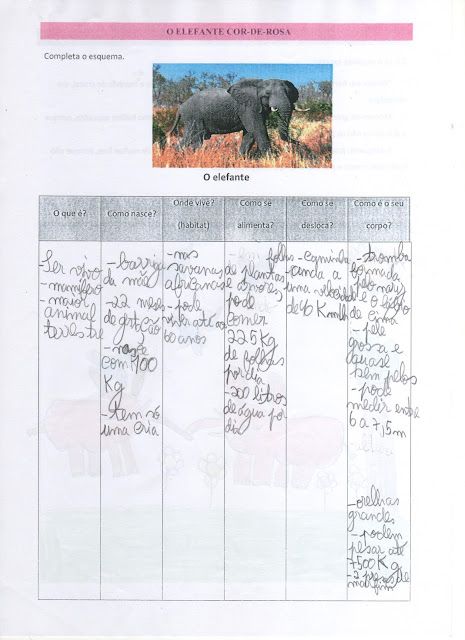 O ELEFANTE COR-DE-ROSA
Completa o esquema.
O elefante
O que é?
Como nasce?
Onde vive?
(habitat)
Como se
alimenta?
Como se
desloca?
Como é o seu
corpo?
Ser vivo
- mamífero
- maior
animal
terrestre
- barriga
da mãe
- 22 meses
de gestação
- nasce
com 100
Kg
- tem só
uma cria
- nas
savanas
africanas
- pode
viver até aos
60 anos
- folhas
de plantas
e árvores
pode
comer
225 Kg
de folhas
por dia
- 200 litros
de água por
dia
- caminha
a uma velocidade
de 6 Km/h
- tromba
formada
pelo nariz
e o lábio
de cima
- pele
grossa e
quase
sem pelos
- pode
medir entre
6 a 7,5m
- orelhas
grandes
- podem
pesar até
7500 Kg
- 2 presas de
marfim